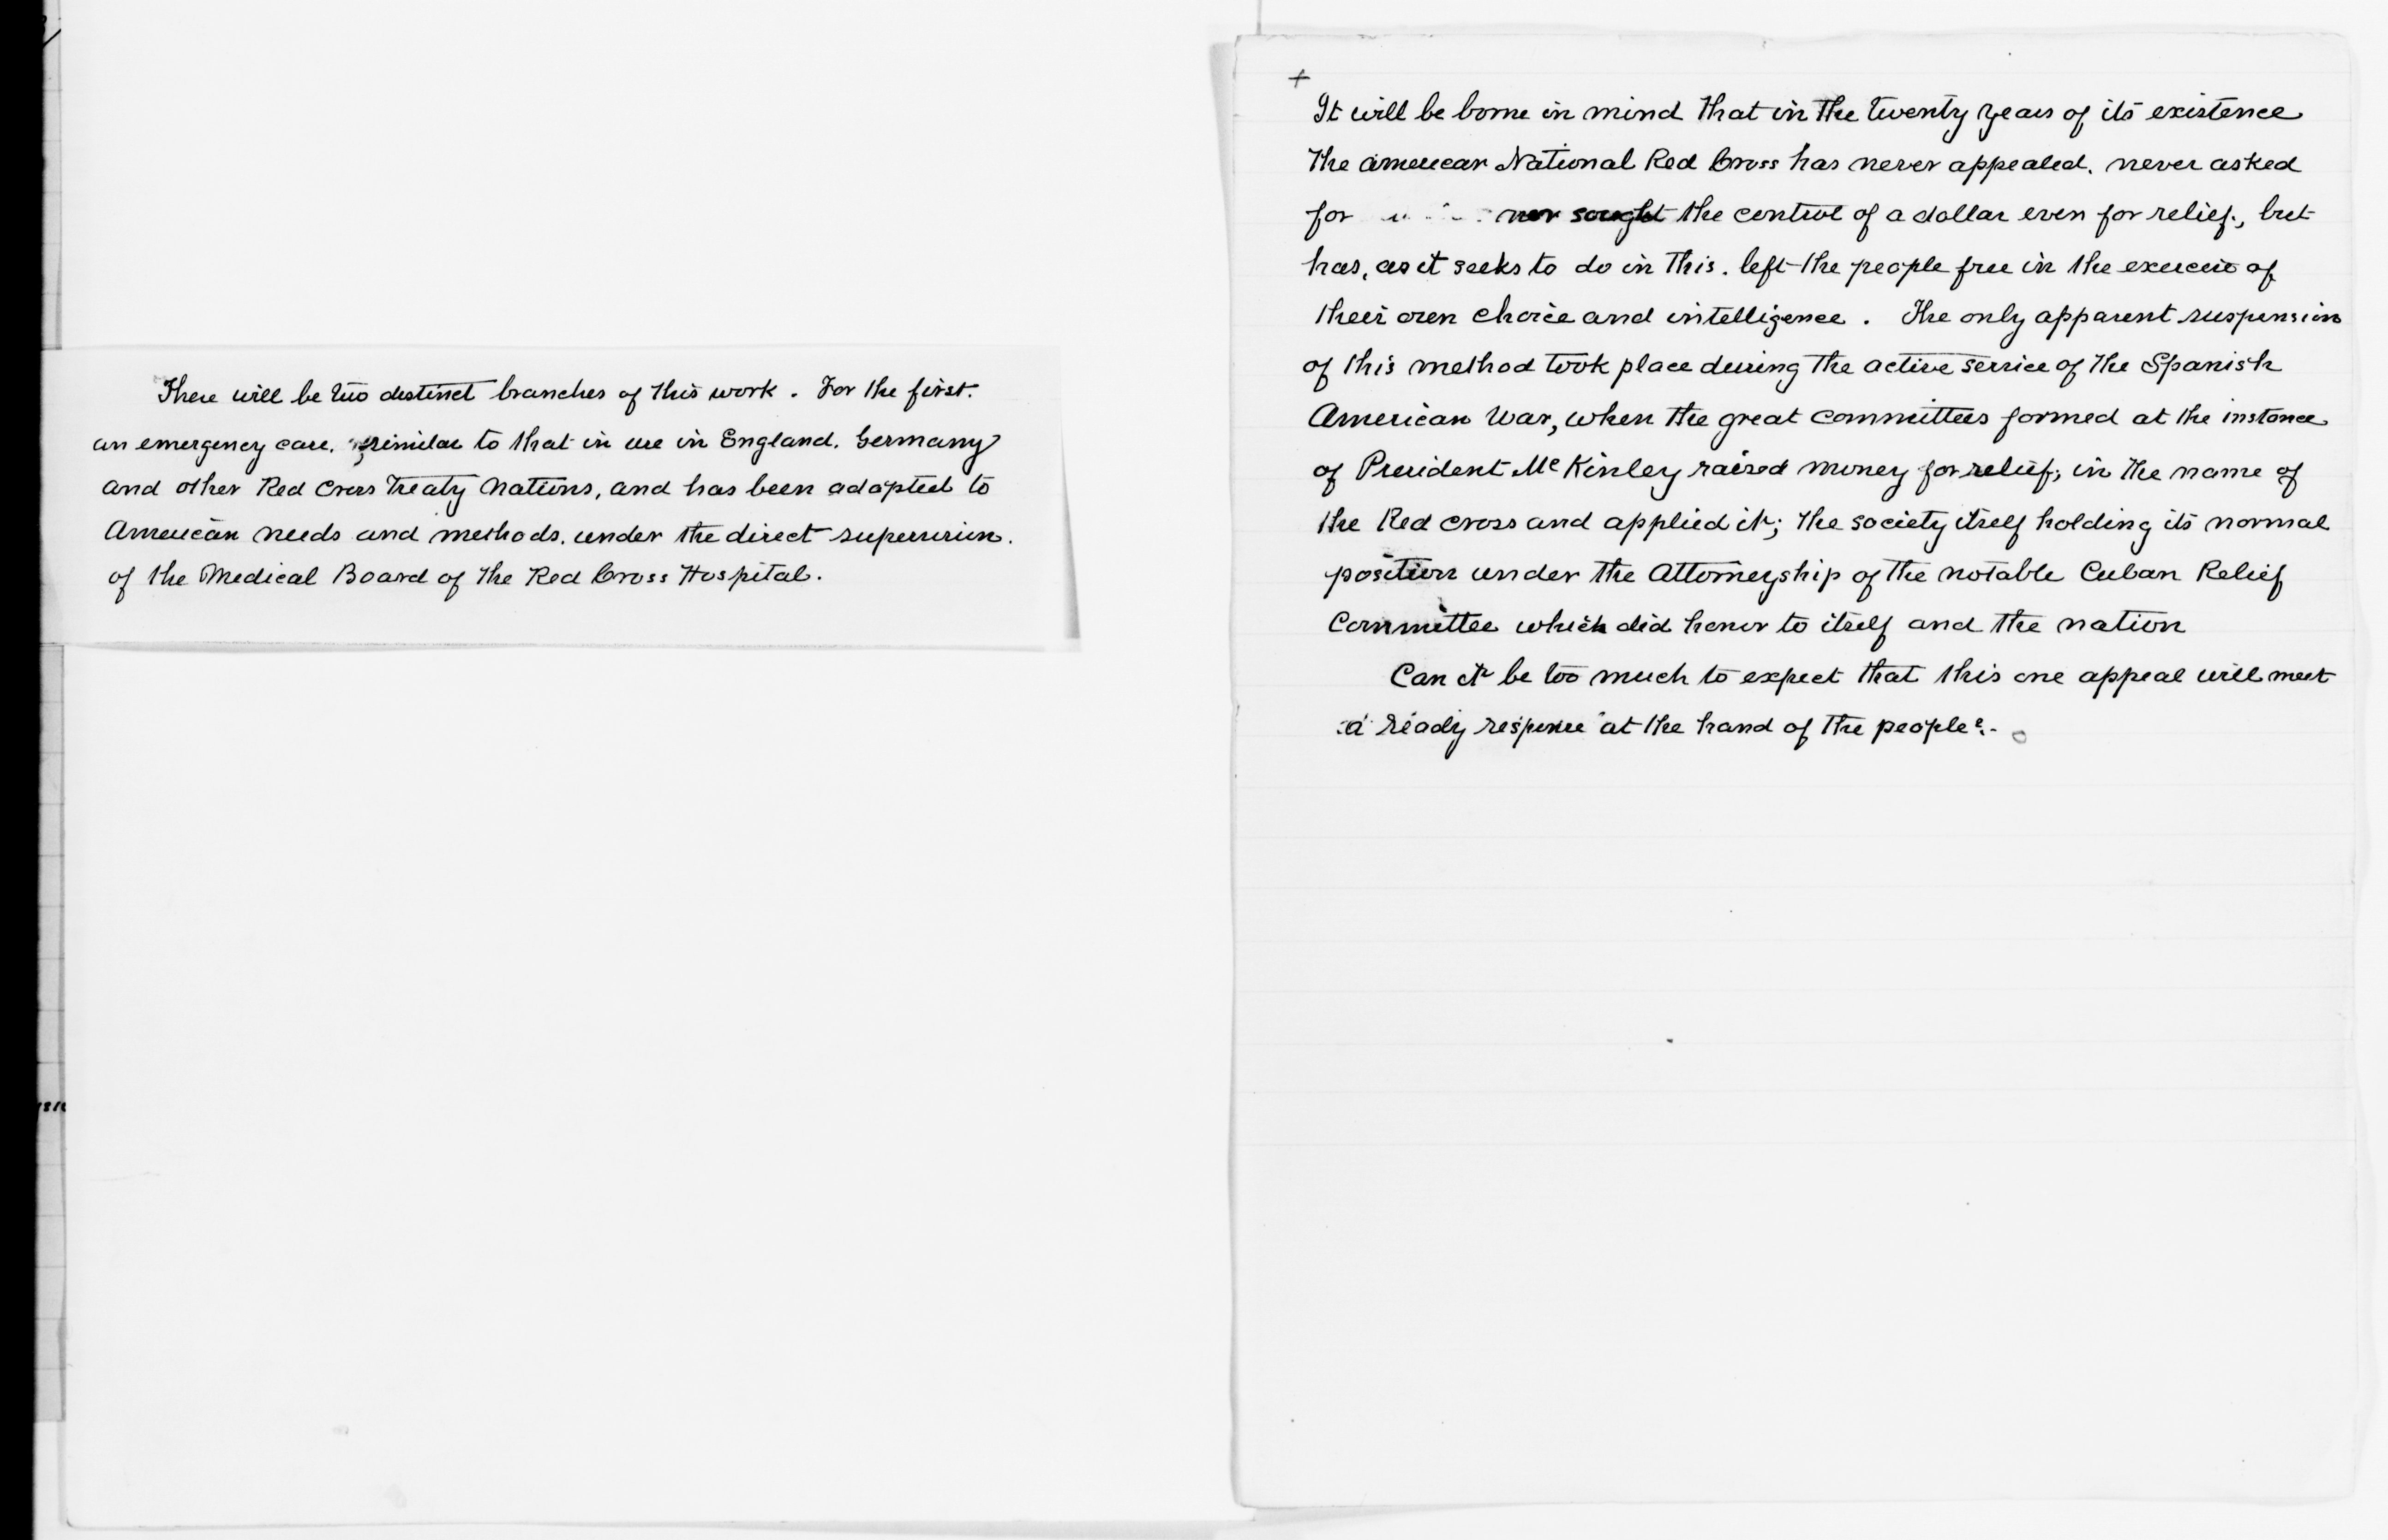 There will be two distinct branches of this work. For the first.
an emergency care, similar to that in use in England, Germany
and other Red Cross Treaty Nations, and has been adapted to
American needs and methods. under the direct supervision.
of the Medical Board of the Red Cross Hospital.
+
It will be borne in mind that in the twenty years of its existence
the American National Red Cross has never appealed. never asked
for nor sought the control of a dollar even for relief, but
has, as it seeks to do in this. left the people free in the exercise of
their own choice and intelligence. The only apparent suspension
of this method took place during the active service of the Spanish
American War, when the great committees formed at the instance
of President McKinley raised money for relief, in the name of
the Red Cross and applied it; the society itself holding its normal
position under the Attorneyship of the notable Cuban Relief
Committee which did honor to itself and the nation
Can it be too much to expect that this one appeal will meet
a ready response at the hand of the people?-